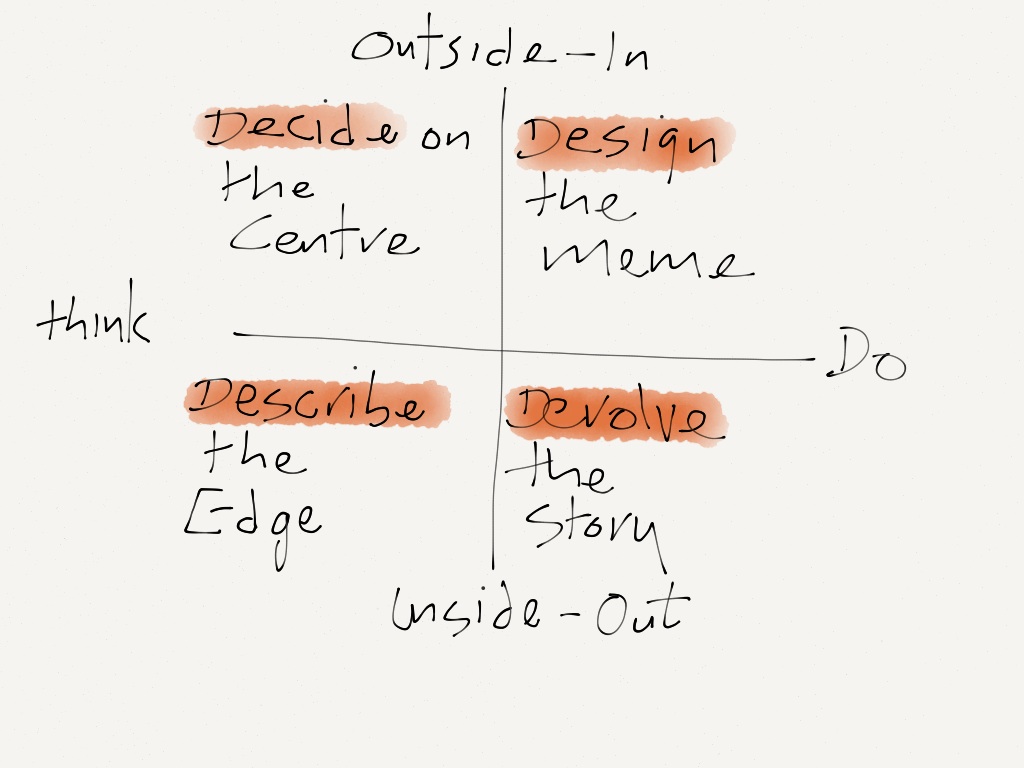 Outside-In
Decide on
the
Centre
Design
the
Meme
think
Do
Describe
the
Edge
Devolve
the
Story
Inside-Out